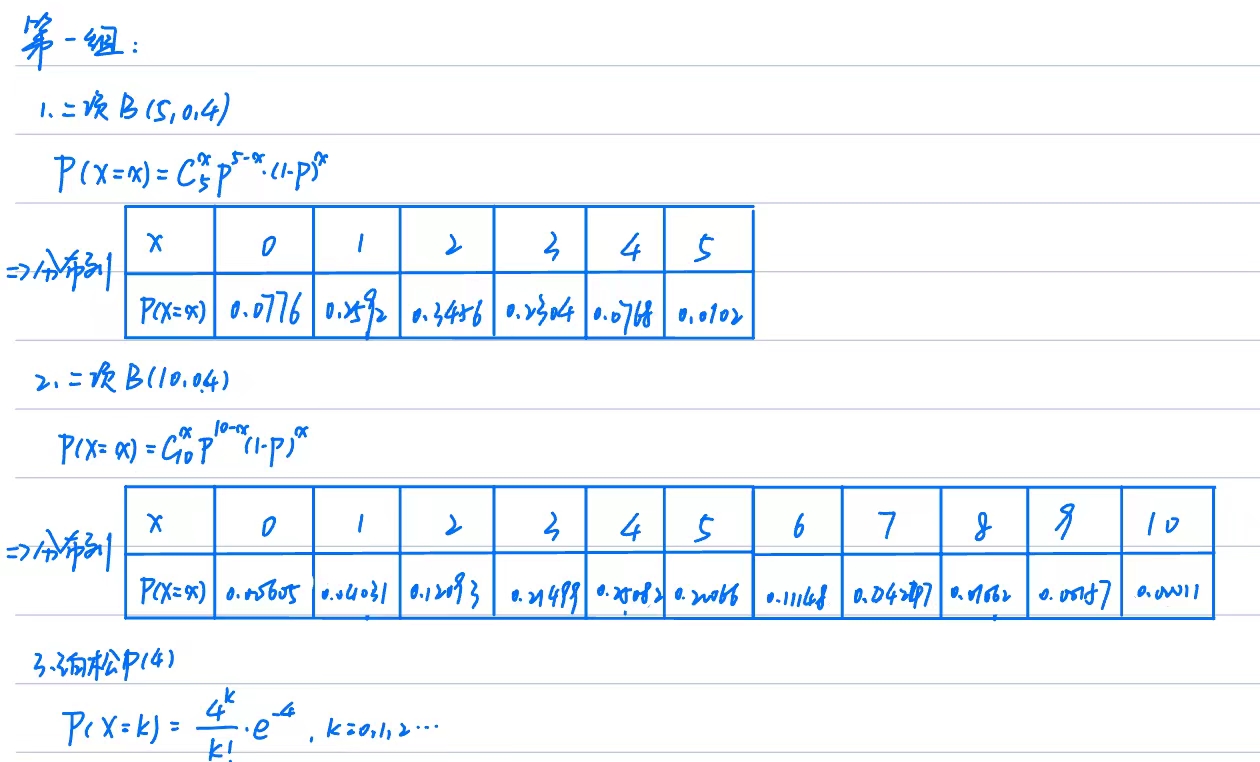 第一组:
1.二项 B(5,0.4)
P(X=x)=C₅ˣp⁵⁻ˣ·(1-p)ˣ
=>分布列
X 0 1 2 3 4 5
P(X=x) 0.0776 0.2592 0.3456 0.2304 0.0768 0.0102
2.二项 B(10,0.4)
P(X=x)=C₁₀ˣp¹⁰⁻ˣ(1-p)ˣ
=>分布列
X 0 1 2 3 4 5 6 7 8 9 10
P(X=x) 0.00605 0.04031 0.12093 0.21499 0.25082 0.20066 0.11148 0.01062 0.00157 0.00011
3.泊松P(4)
P(X=k)=4ᵏ/k!·e⁻⁴,k=0,1,2…